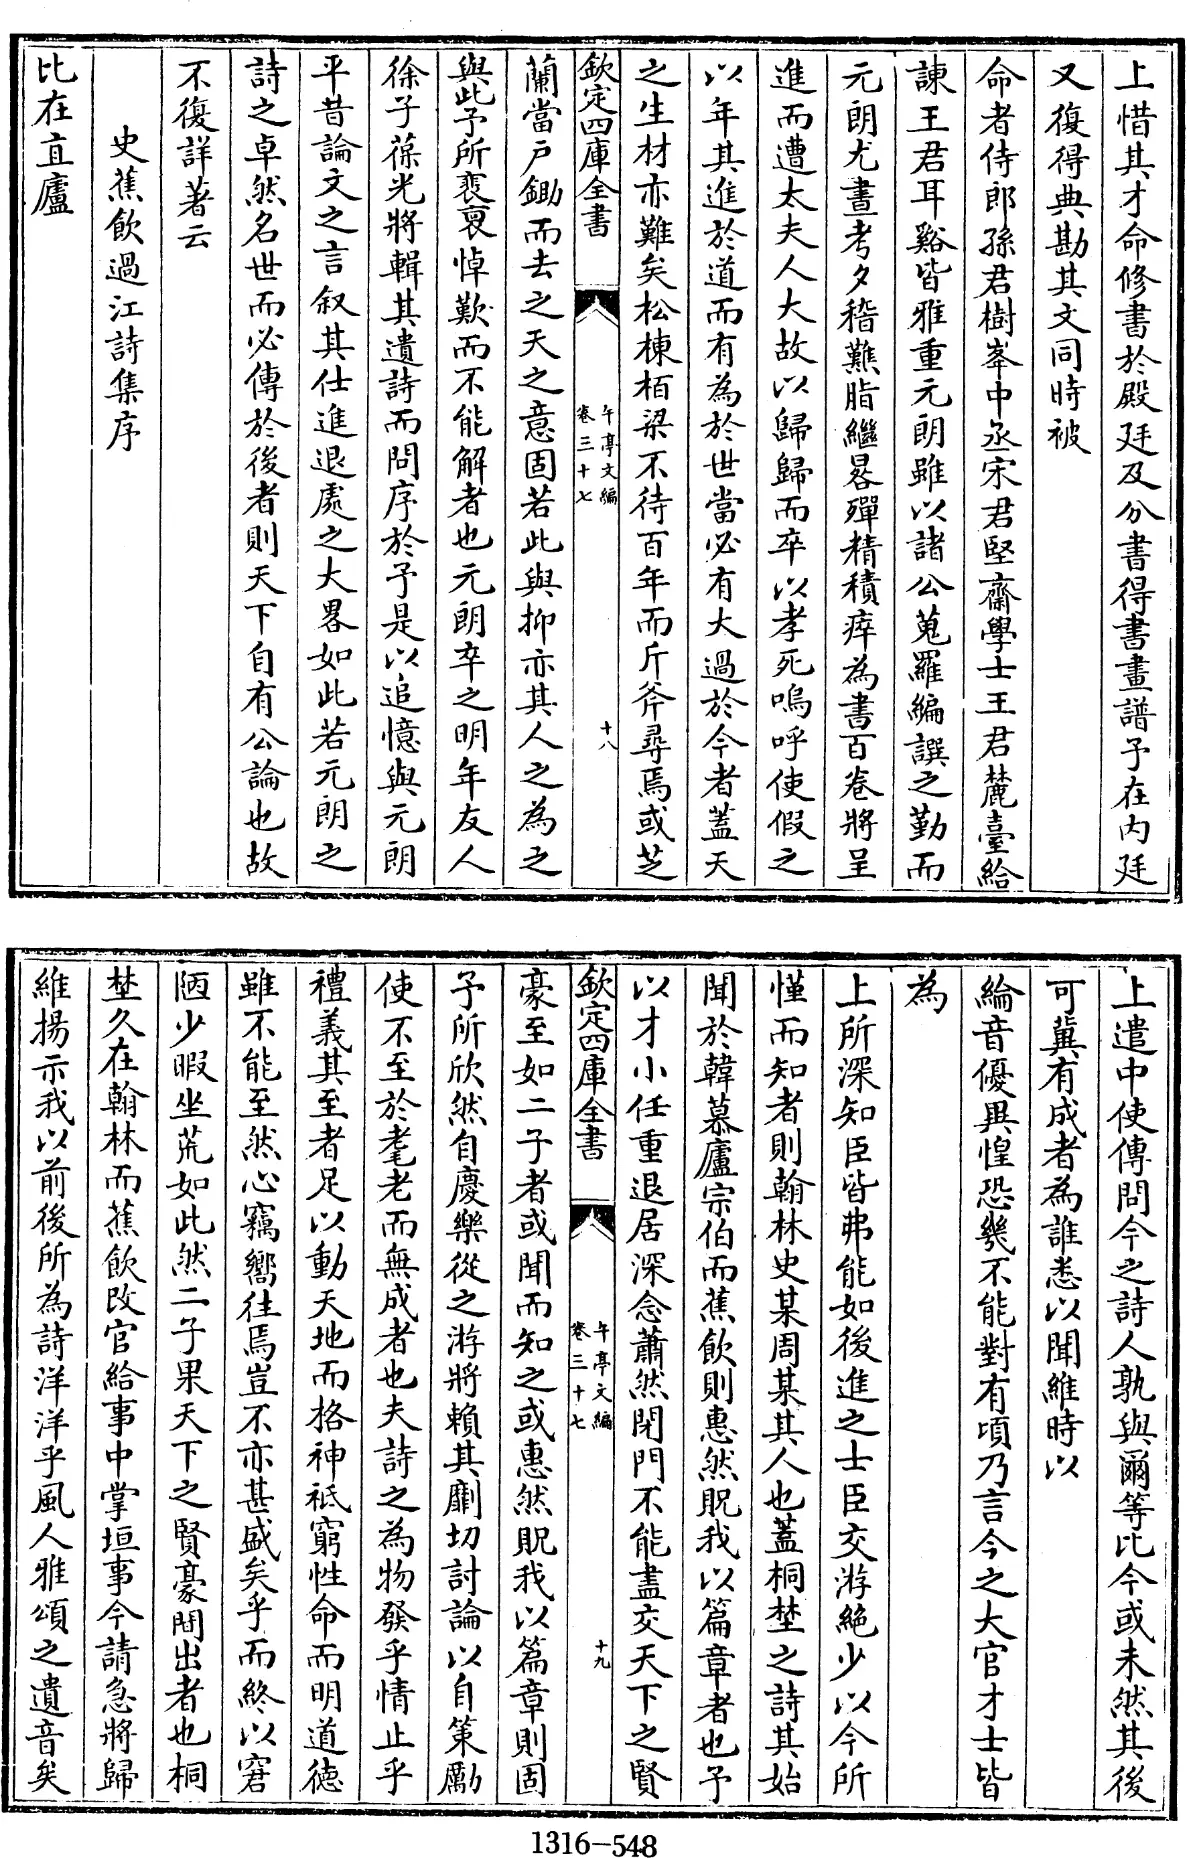 上惜其才命修書於殿廷及分書得書畫譜予在内廷
又復得典勘其文同時被
命者侍郎孫君樹峯中丞宋君堅齋學士王君麓臺給
諫王君耳谿皆雅重元朗雖以諸公蒐羅編譔之勤而
元朗尤晝考夕稽難脂繼晷殫精積瘁為書百卷將呈
進而遭太夫人大故以歸歸而卒以孝死嗚呼使假之
以年其進於道而有為於世當必有大過於今者蓋天
之生材亦難矣松棟栢梁不待百年而斤斧尋焉或芝
欽定四庫全書
午亭文編
卷三十七
十八
蘭當戸鋤而去之天之意固若此與抑亦其人之為之
與此予所裵裒悼歎而不能解者也元朗卒之明年友人
徐子葆光將輯其遺詩而問序於予是以追憶與元朗
平昔論文之言叙其仕進退處之大畧如此若元朗之
詩之卓然名世而必傳於後者則天下自有公論也故
不復詳著云
史蕉飲過江詩集序
比在直廬
上遣中使傳問今之詩人孰與爾等比今或未然其後
可冀有成者為誰悉以聞維時以
綸音優異惶恐幾不能對有頃乃言今之大官才士皆
為
上所深知臣皆弗能如後進之士臣交游絶少以今所
慬而知者則翰林史某周某其人也蓋桐埜之詩其始
聞於韓慕廬宗伯而蕉飲則惠然貺我以篇章者也予
以才小任重退居深念蕭然閉門不能盡交天下之賢
欽定四庫全書
午亭文編
卷三十七
十九
豪至如二子者或聞而知之或惠然貺我以篇章則固
予所欣然自慶樂從之游將賴其劘切討論以自策勵
使不至於耄老而無成者也夫詩之為物發乎情止乎
禮義其至者足以動天地而格神祇窮性命而明道德
雖不能至然心竊嚮往焉豈不亦甚盛矣乎而終以窘
陋少暇坐荒如此然二子果天下之賢豪間出者也桐
埜久在翰林而蕉飲改官給事中掌垣事今請急將歸
維揚示我以前後所為詩洋洋乎風人雅頌之遺音矣
1316-548